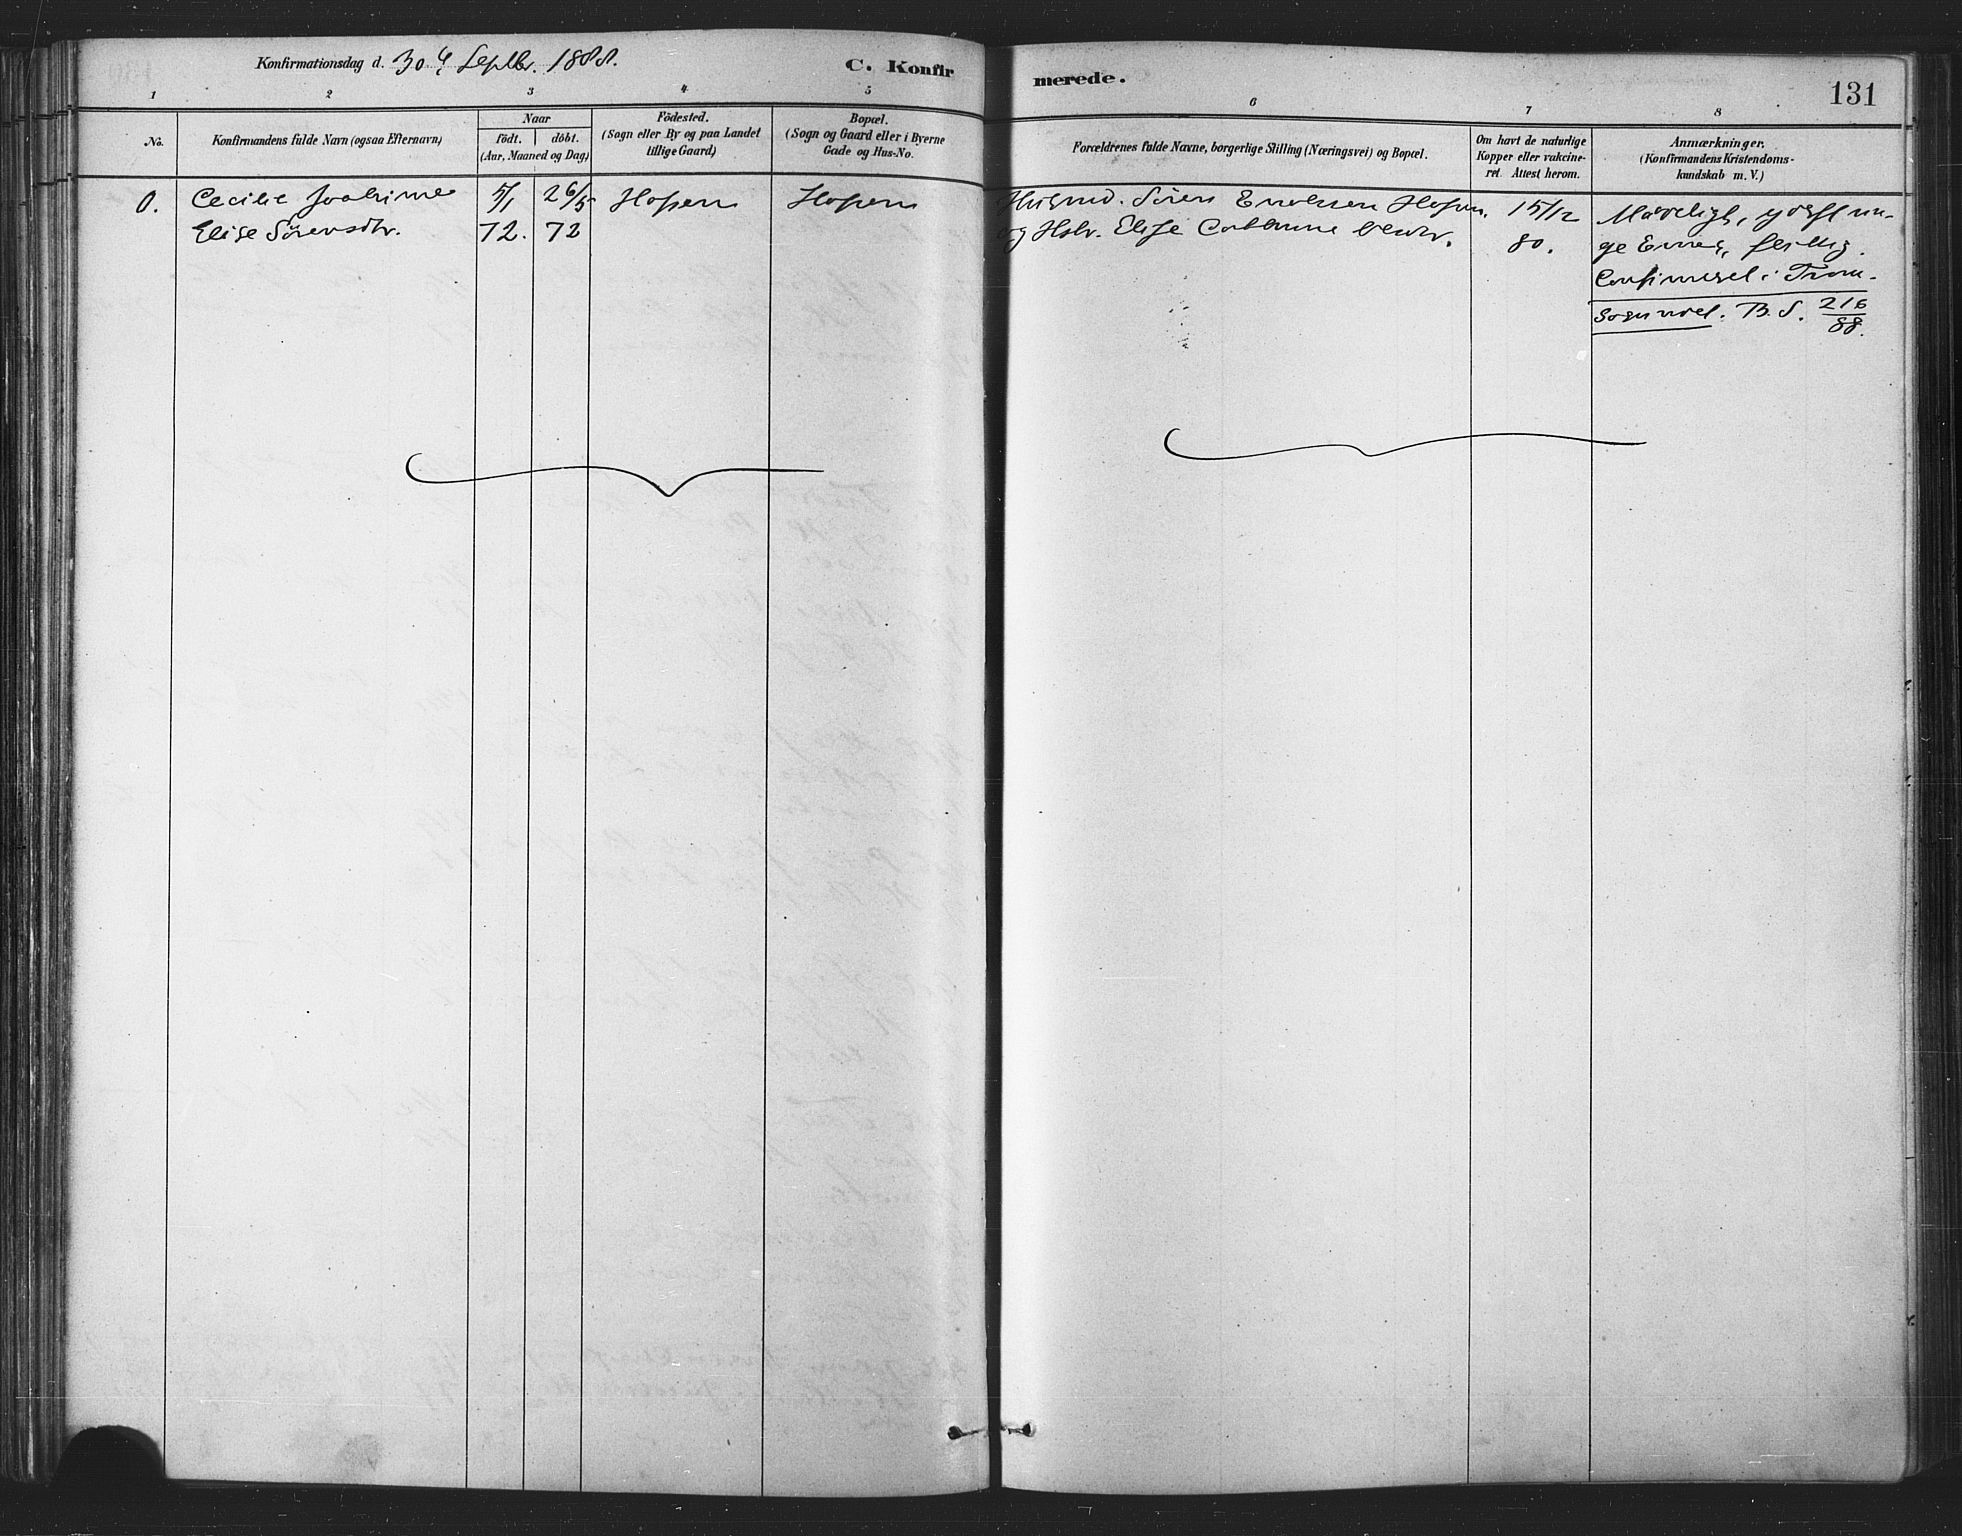 Konfirmationsdag d. 30 Septbr. 1888.
C. Konfir
merede.
131
1 2 3 4 5 6 7 8
No.
Konfirmandens fulde Navn (ogsaa Efternavn)
Naar
födt. döbt.
(Aar, Maaned og Dag)
Födested.
(Sogn eller By og paa Landet
tillige Gaard)
Bopæl.
(Sogn og Gaard eller i Byerne
Gade og Hus-No.
Forældrenes fulde Navne, borgerlige Stilling (Næringsvei) og Bopæl.
Om havt de naturlige
Kopper eller vakcine-
ret. Attest herom.
Anmærkninger.
(Konfirmandens Kristendoms-
kundskab m. V.)
0. Cecilie Joakime 5/1 26/5 Hopen Hopen Husmd. Sören Enoksen Hopen. 15/12
Elise Sörensdtr. 72. 72 og Hstr. Elise 80.
flittig.
i Trom-
B. S. 216
88.